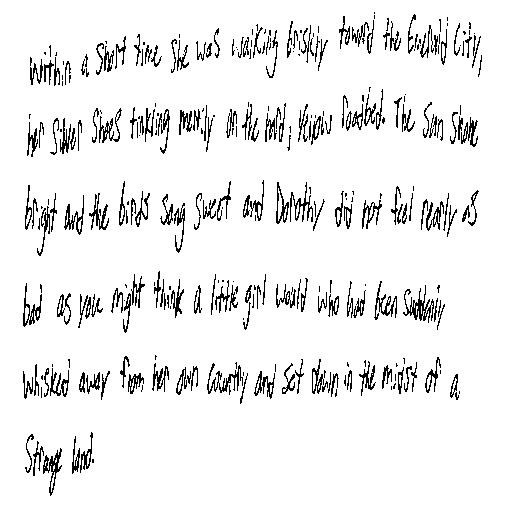 within a short time she was walking briskly toward the Emerald City,
her Silver Shoes tinkling merrily on the hard, yellow roadbed. The sun shone
bright and the birds sang sweet and Dorothy did not feel nearly as
bad as you might think a little girl would who had been suddenly
whisked away from her own country and set down in the midst of a
strange land.